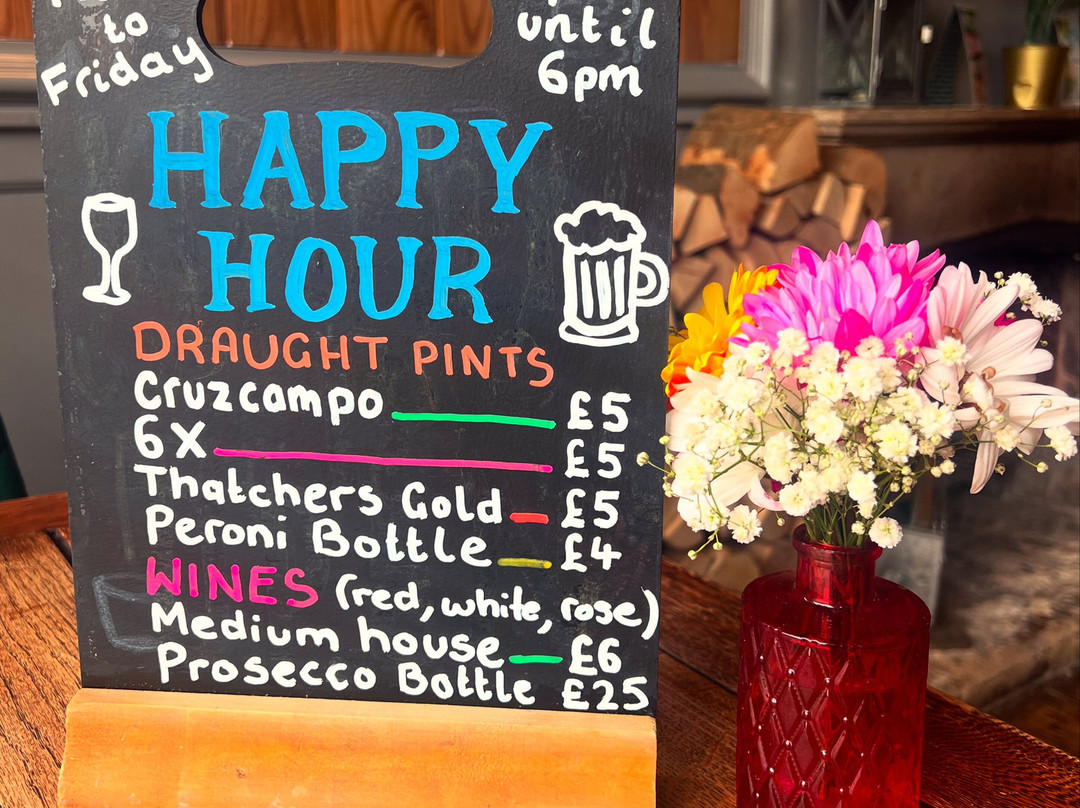 to
Friday
until
6pm
HAPPY
HOUR
DRAUGHT PINTS
Cruzcampo £5
6X £5
Thatchers Gold £5
Peroni Bottle £4
WINES (red, white, rose)
Medium house £6
Prosecco Bottle £25